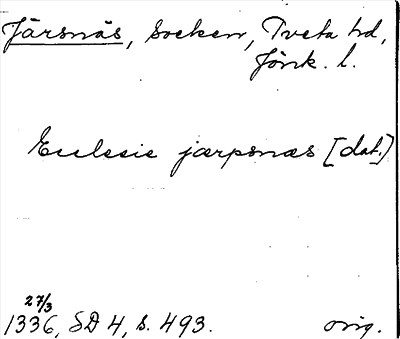 Järsnäs, Socken, Tveta hd,
Jönk. l.
Ecclesie jærpsnæs [dat.]
27/3
1336, SD 4, s. 493. orig.